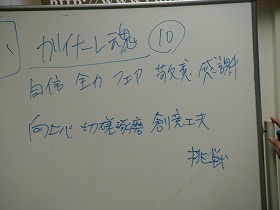 ガイナーレ魂 10
自信 全力 フェア 敬意 感謝
向上心 切磋琢磨 創意工夫
挑戦